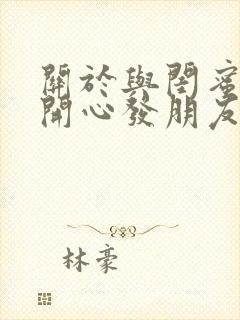 關於與閨蜜
開心發朋友
林豪